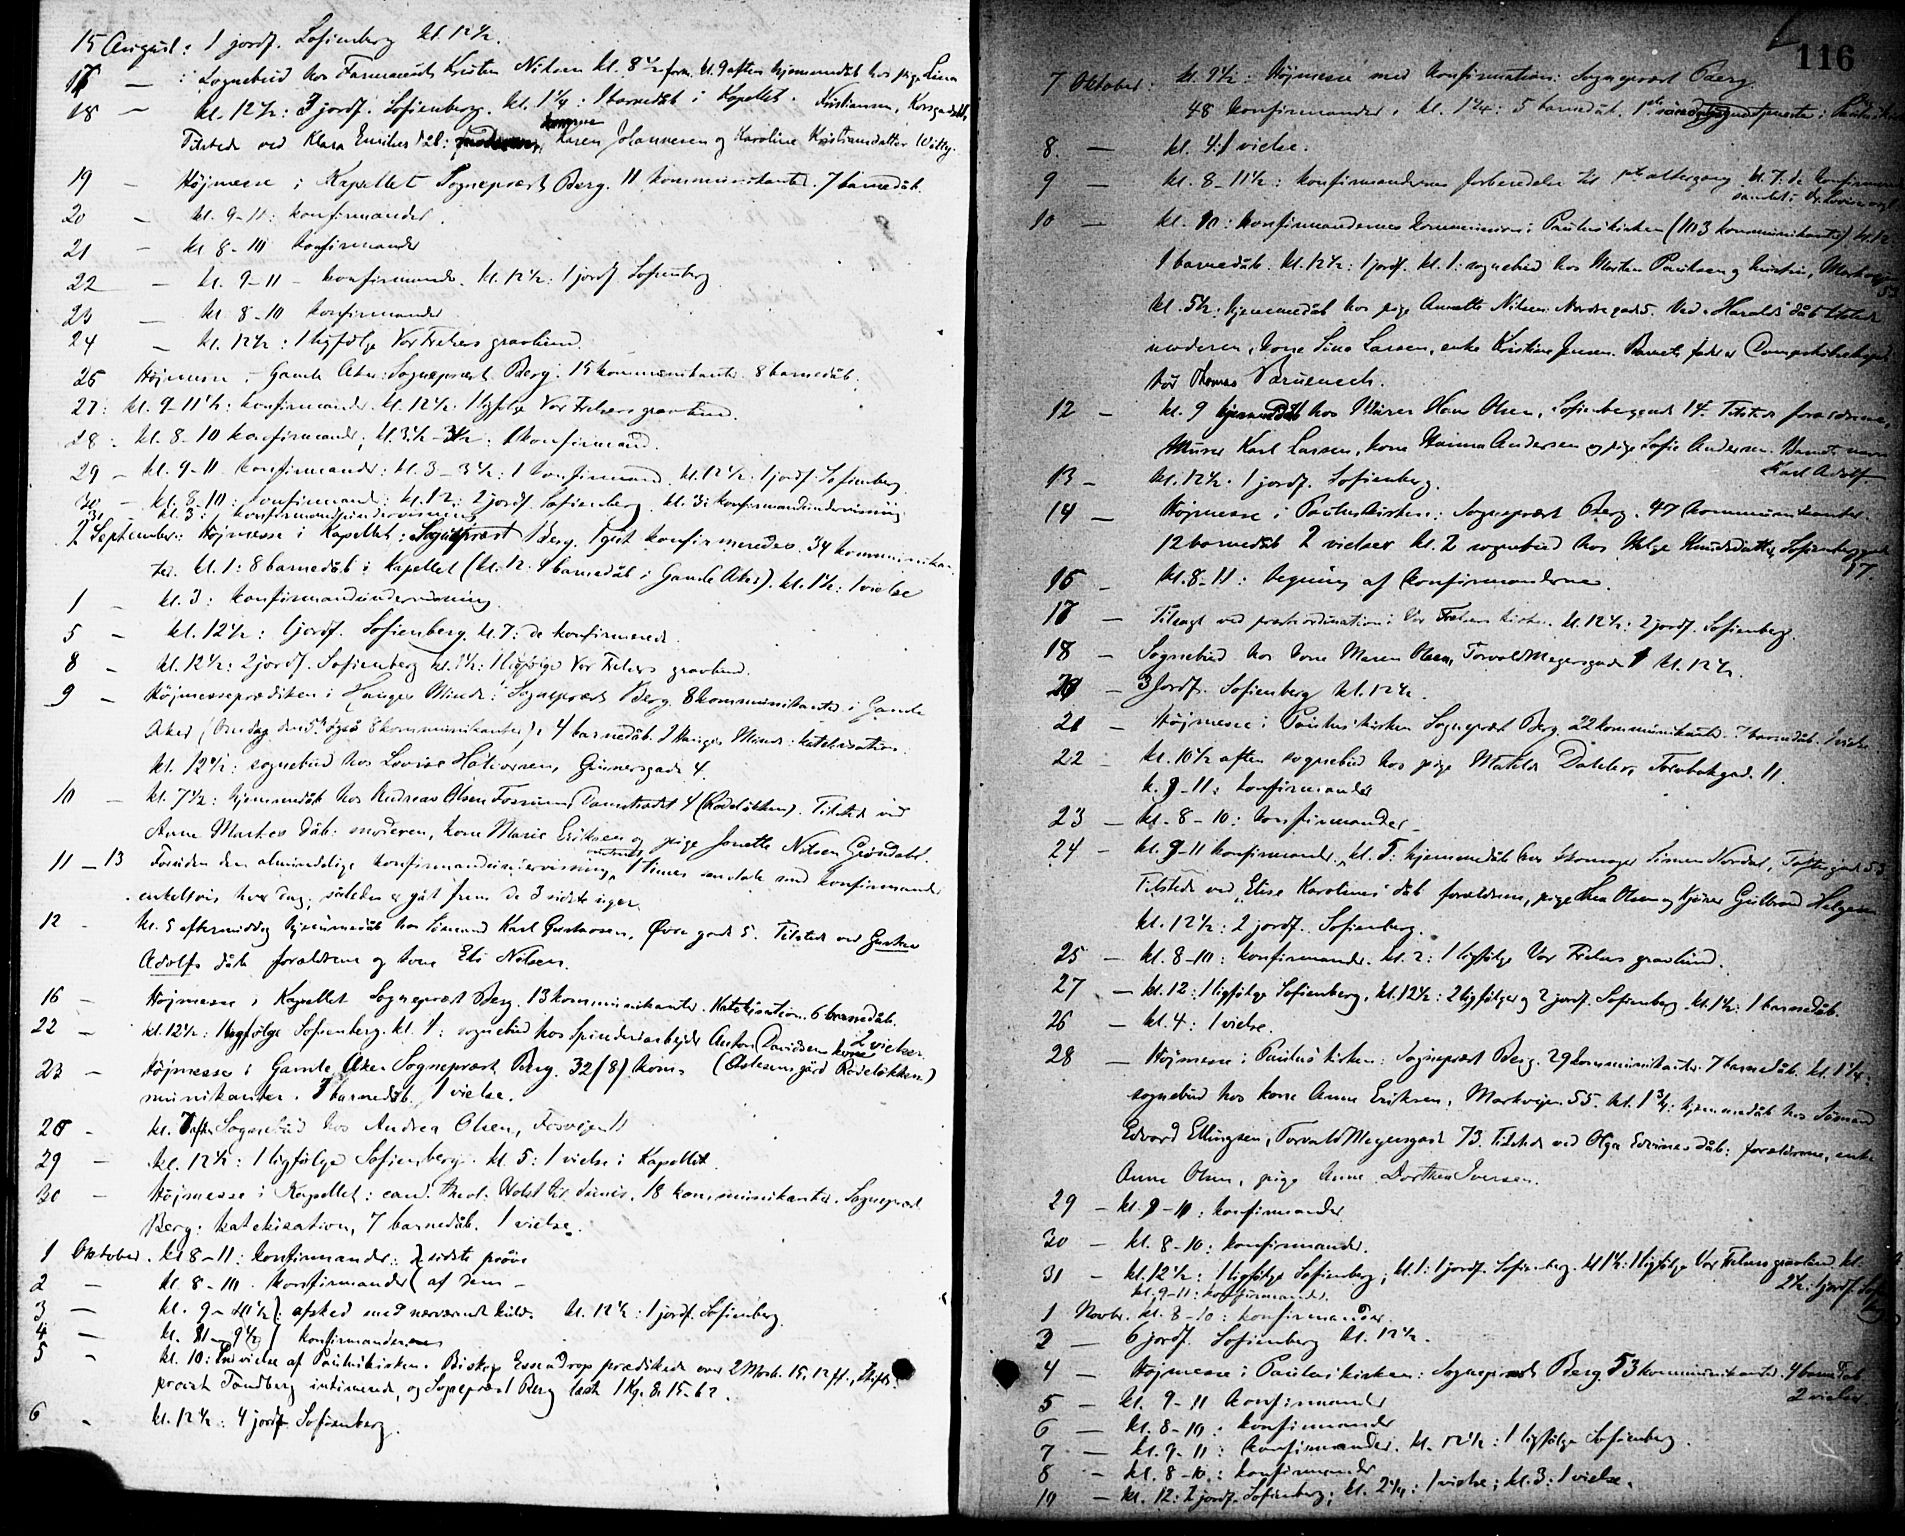 15 August: 1 jordf. Sofienberg kl. 12 1/2.
17 — : Sognebud hos Farmand Kristen Nilsen kl. 8 1/2 form. kl. 9 aften hjemmedåb hos pige Lina
18 — kl. 12 1/2: 3 jordf. Sofienberg. kl. 1 1/4: 1 barnedåb i Kapellet. Kristiansen, Korsgade
Tilstede ved Klara Emilies dåb: konerne Karen Johannesen og Karoline Kristiansdatter Willy.
19 — Højmesse i Kapellet Sogneprest Berg. 11 kommunikanter. 7 barnedåb.
20 — kl. 9-11: konfirmander.
21 — kl 8-10 konfirmander
22 — kl. 9-11 - konfirmander. kl. 12 1/2: 1 jordf Sofienberg
23 — kl. 8-10 konfirmander
24 — kl. 12 1/2: 1 ligfølge Vor Frelsers gravlund.
26 Højmesse i Gamle Aker: Sogneprest Berg: 15 kommunikanter. 8 barnedåb.
27: kl. 9-11 1/2: konfirmander. kl. 12 1/2. 1 ligfølge Vor Frelsers gravlund.
28: kl. 8-10 konfirmander, kl. 3 1/2: 1 konfirmand.
29 — kl. 9-11 konfirmander: kl. 3-3 1/2: 1 konfirmand. kl. 12 1/2: 1 jordf. Sofienberg.
30 — kl. 8-10: konfirmander: kl. 12: 2 jordf. Sofienberg. kl. 3: konfirmandundervisning
31 kl. 3: konfirmandundervisning
2 September: Højmesse i Kapellet: Sogneprest Berg. konfirmeredes. 34 kommunikan-
ter. kl. 1: 8 barnedåb i Kapellet (kl. 12: 4 barnedåb i Gamle Aker). kl. 1 1/2: 1 vielse
1 — kl. 3: konfirmandundervisning
5 — kl. 12 1/2: 1 jordf. Sofienberg. kl. 7: de konfirmerede.
8 — kl. 12 1/2: 2 jordf. Sofienberg kl. 1 1/2: 1 ligfølge Vor Frelsers gravlund.
9 — Højmesseprædiken i Hauges Minde: Sogneprest Berg. 8 kommunikanter i Gamle
Aker (Onsdag den 5te også 8 kommunikanter): 4 barnedåb. I Hauges Minde: katekisation.
kl. 12 1/2: sognebud hos Lovise Halvorsen, Grünersgade 4.
10 — kl. 7 1/2: hjemmedåb hos Andreas Olsen Fossum, Damstrædet 4 (Rodeløkken). Tilstede ved
Anne Marthes dåb: moderen, kone Marie Eriksen og pige Jonette Nilsen Grøndahl.
11 — 13 Foruden den almindelige konfirmandundervisning, 1 times samtale med konfirmander
enkeltvis hver dag; således er gåt frem de 3 sidste uger.
12 . kl. 5 eftermiddag hjemmedåb hos Sømand Karl Gustavsen, Øvregade 5. Tilstede ved Gustav
Adolfs dåb forældrene og kone Eli Nilsen.
16 — Højmesse i Kapellet Sogneprest Berg. 13 kommunikanter. Katekisation. 6 barnedåb.
2 vielser.
22 — kl. 12 1/2: 1 ligfølge Sofienberg. kl. 1: sognebud hos Spinderiarbejder Anton Davidsens kone
23 — Højmesse i Gamle Aker Sogneprest Berg. 32 (8) kom- (Rodeløkken)
munikanter. 7 barnedåb. 1 vielse.
26 — kl. 7 aften Sognebud hos Andrea Olsen, Fosvejen 11
29 — kl. 12 1/2: 1 ligfølge Sofienberg. kl. 5: 1 vielse i Kapellet.
30 — Højmesse i Kapellet: cand. theol. Holst. 18 kommunikanter. Sogneprest
Berg: katekisation, 7 barnedåb. 1 vielse.
1 Oktober. kl 8-11: konfirmander: sidste prøve
2 — kl 8-10. konfirmander af dem
3 — kl. 9-10 1/2: afsked med nærværende kulds kl. 12 1/2: 1 jordf. Sofienberg.
4 — kl. 8-9 1/2 konfirmander
5 — kl. 10: Indvielse af Pauluskirken. Biskop Essendrop prædikede over 2 Mosb. 15, 17 ff., Stifts-
provst Tandberg intimerede, og Sogneprest Berg læste 1 Kg. 8. 15-62.
6 — kl. 12 1/2: 4 jordf. Sofienberg.
116
7 Oktober: kl. 9 1/2: Højmesse med konfirmation: Sogneprest Berg
48 konfirmander. kl. 1 1/4: 5 barnedåb. 1ste søndagsgudstjeneste i Pauluskirken
8. — kl. 4: 1 vielse.
9 — kl. 8-11 1/2: konfirmandernes forberedelse til 1ste altergang. kl. 7: de konfirmerede
10 — kl. 10: konfirmandernes kommunion i Pauluskirken (103 kommunikanter). kl. 12:
1 barnedåb. kl. 12 1/2: 1 jordf. kl. 1: sognebud hos Morten Paulsen og hustru, Markvejen
53
kl. 5 1/2: hjemmedåb hos pige Annette Nilsen Nordregade 5. Ved Haralds dåb tilstede
moderen, kone Line Larsen, enke Kristine Jensen. Barnets fader
Thomas
12 — kl. 9 hjemmedåb hos Murer Hans Olsen, Sofienberggade 14. Tilstede forældrene,
Murer Karl Larsen, kone Hanna Andersen og pige Sofie Andersen. Barnets navn
Karl Adolf
13 — kl. 12 1/2. 1 jordf. Sofienberg.
14 — Højmesse i Pauluskirken: Sogneprest Berg. 47 kommunikanter.
12 barnedåb 2 vielser kl. 2 sognebud hos Helge Knudsdatter, Sofienberggade
37.
15 — kl. 8-11: tegning af konfirmanderne.
17 — Tilsagt ved præsteordination i Vor Frelsers kirke. kl. 12 1/2: 2 jordf. Sofienberg.
18 — Sognebud hos kone Maren Olsen, Torvald Meyersgade 1 kl. 12 1/2.
20 — 3 Jordf. Sofienberg kl. 12 1/2.
21 — Højmesse i Pauluskirken Sogneprest Berg. 22 kommunikanter. 7 barnedåb. 1 vielse.
22 — kl. 10 1/2 aften sognebud hos pige Matilde Dahler, Fossbakgade 11.
kl. 9-11: konfirmander
23 — kl. 8-10: konfirmander
24 — kl. 9-11 konfirmander, kl. 5: hjemmedåb hos Skomager Simen Nordet, Toftesgade 53
Tilstede ved „Elise Karolines“ dåb forældrene, pige Thea Olsen og Kjører Gulbrand Helgesen
kl. 12 1/2: 2 jordf. Sofienberg.
25 — kl. 8-10: konfirmander. kl. 2: 1 ligfølge Vor Frelsers gravlund.
27 — kl. 12: 1 ligfølge Sofienberg, kl. 12 1/2: 2 ligfølger og 2 jordf. Sofienberg. kl. 1 1/2: 1 barnedåb.
26 — kl. 4: 1 vielse.
28 — Højmesse i Pauluskirken: Sogneprest Berg. 29 kommunikanter. 7 barnedåb. kl. 1 1/4:
sognebud hos kone Anne Eriksen, Markvejen 55. kl. 1 3/4: hjemmedåb hos Sømand
Edvard Ellingsen, Torvald Meyersgade 73. Tilstede ved Olga Edvines dåb: forældrene, enke
Anne Olsen, pige Anne Dorthea Iversen.
29 — kl. 9-10: konfirmander
30 — kl. 8-10: konfirmander.
31 — kl. 12 1/2: 1 ligfølge Sofienberg; kl. 1: 1 jordf. Sofienberg. kl 1 1/2: 1 ligfølge Vor Frelsers gravlund kl.
kl. 9-11: konfirmander. 2 1/2: 1 jordf. Sofienberg
1 Novbr. kl. 8-10: konfirmander
3 — 6 jordf. Sofienberg kl. 12 1/2.
4 — Højmesse i Pauluskirken: Sogneprest Berg. 53 kommunikanter. 4 barnedåb.
2 vielser.
5 — kl. 9-11 konfirmander
6 — kl. 8-10: konfirmander
7 — kl. 9-11: konfirmander. kl. 12 1/2: 1 ligfølge Sofienberg.
8 — kl. 8-10: konfirmander
10 — kl. 12: 2 jordf. Sofienberg; kl. 2 1/4: 1 vielse; kl. 3: 1 vielse.